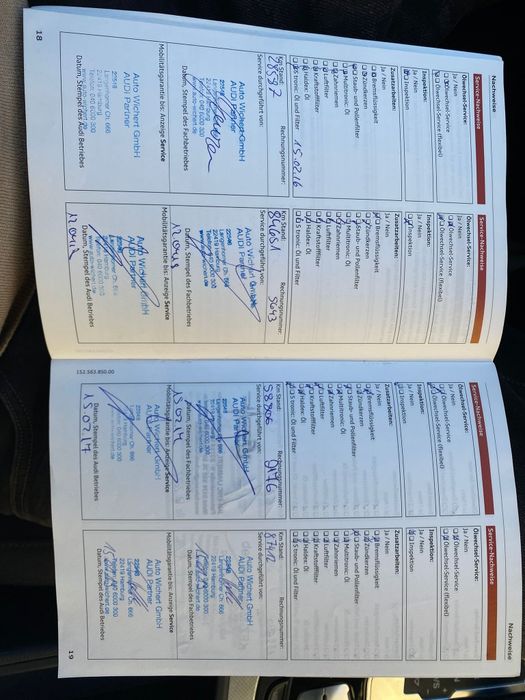 Nachweise
Service-Nachweise
Ölwechsel-Service:
Ja / Nein
Ölwechsel-Service
Ölwechsel-Service (flexibel)
Inspektion:
Ja / Nein
Inspektion
Zusatzarbeiten:
Ja / Nein
Bremsflüssigkeit
Zündkerzen
Staub- und Pollenfilter
Multitronic: Öl
Zahnriemen
Luftfilter
Kraftstofffilter
Haldex: Öl
S tronic: Öl und Filter
15.02.16
Km Stand:
Rechnungsnummer:
Service durchgeführt von:
Auto Wichert GmbH
AUDI Partner
Datum, Stempel des Fachbetriebes
Mobilitätsgarantie bis: Anzeige Service
Auto Wichert GmbH
AUDI Partner
22518
Langenhorner Ch. 666
22419 Hamburg
Datum, Stempel des Audi Betriebes
18
Service-Nachweise
Ölwechsel-Service:
Ja / Nein
Ölwechsel-Service
Ölwechsel-Service (flexibel)
Inspektion:
Ja / Nein
Inspektion
Zusatzarbeiten:
Ja / Nein
Bremsflüssigkeit
Zündkerzen
Staub- und Pollenfilter
Multitronic: Öl
Zahnriemen
Luftfilter
Kraftstofffilter
Haldex: Öl
S tronic: Öl und Filter
Km Stand:
Rechnungsnummer:
84651
Service durchgeführt von:
Auto Wichert GmbH
AUDI Partner
Datum, Stempel des Fachbetriebes
Mobilitätsgarantie bis: Anzeige Service
Auto Wichert GmbH
AUDI Partner
Datum, Stempel des Audi Betriebes
152.563.850.00
Service-Nachweise
Ölwechsel-Service:
Ja / Nein
Ölwechsel-Service
Ölwechsel-Service (flexibel)
Inspektion:
Ja / Nein
Inspektion
Zusatzarbeiten:
Ja / Nein
Bremsflüssigkeit
Zündkerzen
Staub- und Pollenfilter
Multitronic: Öl
Zahnriemen
Luftfilter
Kraftstofffilter
Haldex: Öl
S tronic: Öl und Filter
Km Stand:
Rechnungsnummer:
Service durchgeführt von:
Auto Wichert GmbH
AUDI Partner
Datum, Stempel des Fachbetriebes
Mobilitätsgarantie bis: Anzeige Service
Auto Wichert GmbH
AUDI Partner
Datum, Stempel des Audi Betriebes
Nachweise
Service-Nachweise
Ölwechsel-Service:
Ja / Nein
Ölwechsel-Service
Ölwechsel-Service (flexibel)
Inspektion:
Ja / Nein
Inspektion
Zusatzarbeiten:
Ja / Nein
Bremsflüssigkeit
Zündkerzen
Staub- und Pollenfilter
Multitronic: Öl
Zahnriemen
Luftfilter
Kraftstofffilter
Haldex: Öl
S tronic: Öl und Filter
Km Stand:
Rechnungsnummer:
87412
Service durchgeführt von:
Auto Wichert GmbH
AUDI Partner
Datum, Stempel des Fachbetriebes
Mobilitätsgarantie bis: Anzeige Service
Auto Wichert GmbH
AUDI Partner
Datum, Stempel des Audi Betriebes
19